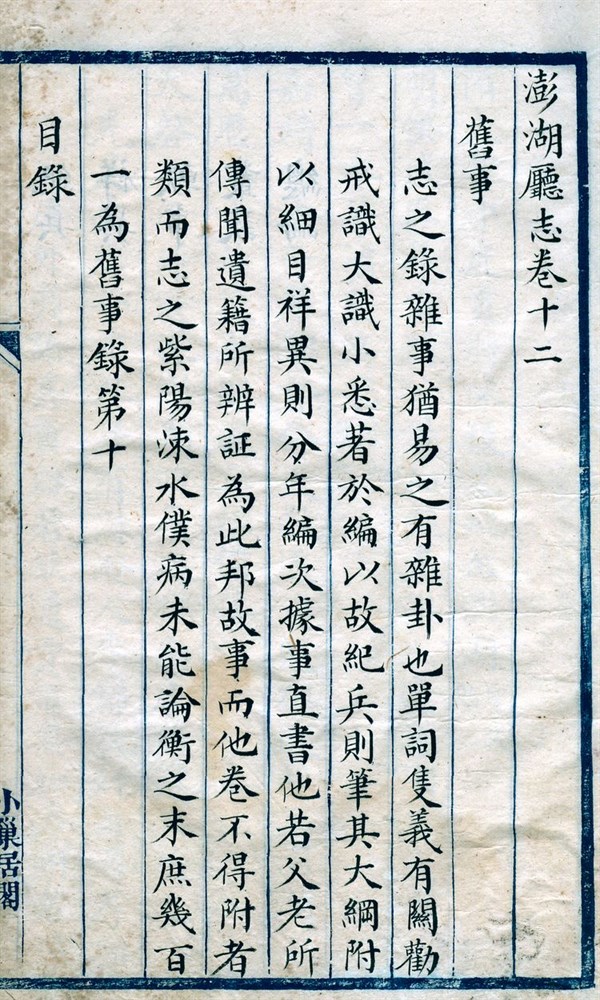 澎湖廳志卷十二
舊事
志之錄雜事猶易之有雜卦也單詞隻義有關勸
戒識大識小悉著於編以故紀兵則筆其大綱附
以細目祥異則分年編次據事直書他若父老所
傳聞遺籍所辨証為此邦故事而他卷不得附者
類而志之紫陽涑水僕病未能論衡之末庶幾百
一為舊事錄第十
目錄
小巢居閣